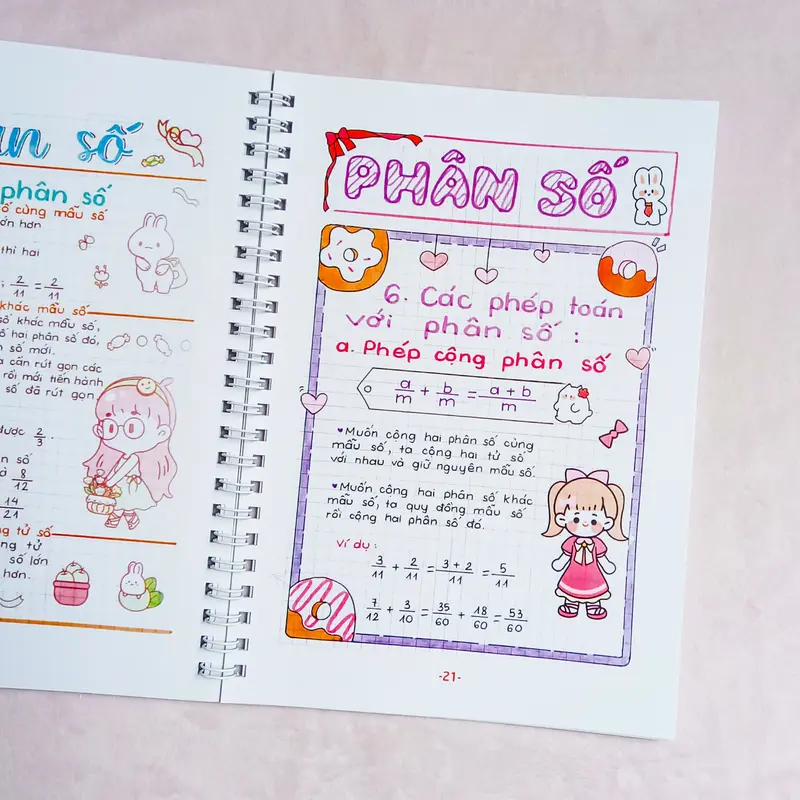 số
phân số
cùng mẫu số
ớn hơn
thì hai
; 2/11 = 2/11
khác mẫu số
số khác mẫu số,
ố hai phân số đó,
n số mới.
a cần rút gọn các
rồi mới tiến hành
số đã rút gọn.
được 2/3.
n số
8/12
14/21
ng tử số
ng tử
số lớn
hơn.
PHÂN SỐ
6. Các phép toán
với phân số :
a. Phép cộng phân số
a/m + b/m = a + b/m
Muốn cộng hai phân số cùng
mẫu số, ta cộng hai tử số
với nhau và giữ nguyên mẫu số.
Muốn cộng hai phân số khác
mẫu số, ta quy đồng mẫu số
rồi cộng hai phân số đó.
Ví dụ :
3/11 + 2/11 = 3 + 2/11 = 5/11
7/12 + 3/10 = 35/60 + 18/60 = 53/60
-21-